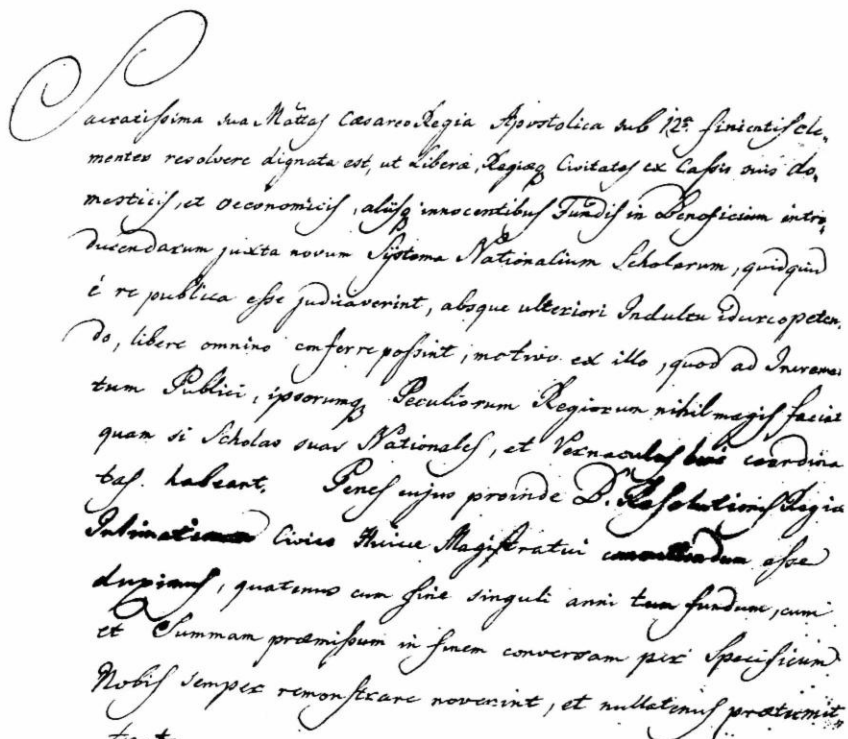 Sacratissima sua Mattas Caesareo Regia Apostolica sub 12a finientis cle-
menter resolvere dignata est, ut Liberae, Regiaeq Civitates ex Cassis suis do-
mesticis, et oeconomicis, aliisq innocentibus Fundis in Beneficium intro-
ducendarum juxta novum Systema Nationalium Scholarum, quidquid
è re publica esse judicaverint, absque ulteriori Indultu
do, libere omnino conferre possint, motivo ex illo, quod ad Increme
tum Publici, ipsorumq Peculiorum Regiorum nihil magis faciat
quam si Scholas suas Nationales, et Vernaculas bene coordina
tas habeant. Penes cujus proinde B. Resolutionis Regia
Intimationem Civico Huicce Magistratui esse
duximus, quatenus cum fine singuli anni tum fundum, cum
et Summam praemissum in finem conversam per Specificum
Nobis semper remonstrare noverint, et nullatenus praetermit-